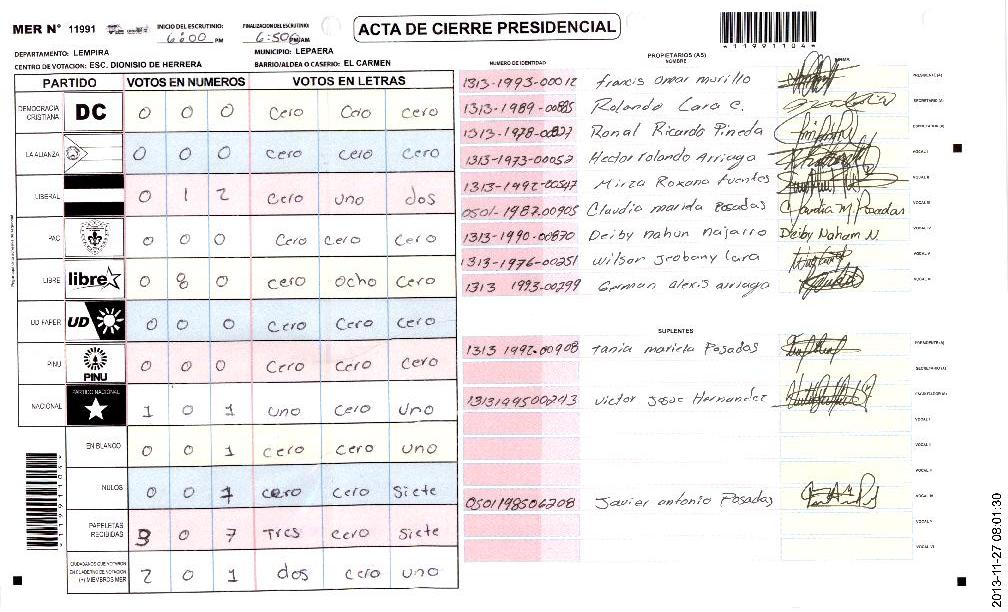 MER N° 11991
INICIO DEL ESCRUTINIO: 6:00 PM
FINALIZACION DEL ESCRUTINIO: 6:50 PM/AM
ACTA DE CIERRE PRESIDENCIAL
11991104
DEPARTAMENTO: LEMPIRA
MUNICIPIO: LEPAERA
CENTRO DE VOTACION: ESC. DIONISIO DE HERRERA
BARRIO/ALDEA O CASERIO: EL CARMEN
PARTIDO VOTOS EN NUMEROS VOTOS EN LETRAS
DEMOCRACIA CRISTIANA DC 0 0 0 Cero Cero Cero
LA ALIANZA 0 0 0 cero cero cero
LIBERAL 0 1 2 cero uno dos
PAC 0 0 0 Cero Cero Cero
LIBRE libre 0 8 0 cero ocho Cero
UD FAPER UD 0 0 0 Cero Cero Cero
PINU PINU 0 0 0 Cero Cero Cero
NACIONAL PARTIDO NACIONAL 1 0 1 uno Cero Uno
EN BLANCO 0 0 1 cero cero uno
NULOS 0 0 7 cero cero Siete
PAPELETAS RECIBIDAS 3 0 7 Tres cero Siete
CIUDADANOS QUE VOTARON EN CUADERNO DE VOTACION (+) MIEMBROS MER 2 0 1 dos cero uno
11991104
PROPIETARIOS (AS)
NUMERO DE IDENTIDAD NOMBRE FIRMA
1313-1993-00012 francis omar murillo PRESIDENTE(A)
1313-1989-00885 Rolando Lara c. SECRETARIO(A)
1313-1978- Ronal Ricardo Pineda ESCRUTADOR(A)
1313-1973-00052 Hector rolando Arriaga VOCAL I
1313-1992-00547 Mirza Roxana fuentes VOCAL II
0501-1987-00905 Claudia mariela Posadas Claudia M. Posadas VOCAL III
1313-1990-00870 Deiby nahun najarro Deiby Naham N. VOCAL IV
1313-1976-00251 wilson Lara VOCAL V
1313 1993-00299 German alexis arriaga VOCAL VI
SUPLENTES
1313 1992-00908 tania mariela Posadas PRESIDENTE(A)
SECRETARIO(A)
1313199500293 victor Josue Hernandez ESCRUTADOR(A)
VOCAL I
VOCAL II
0501198506208 Javier antonio Posadas VOCAL III
VOCAL V
VOCAL VI
2013-11-27 08:01:30